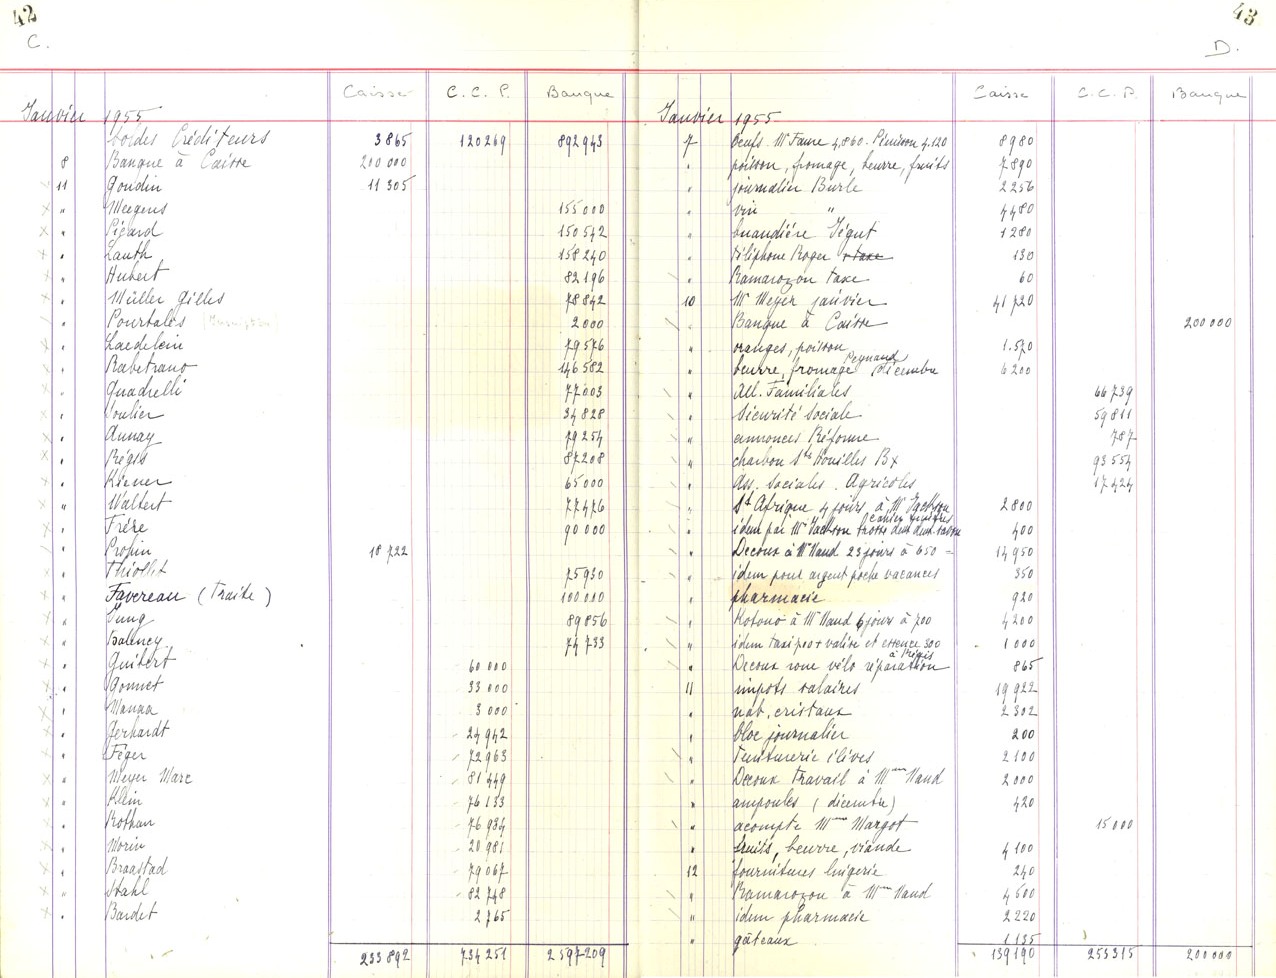 42
C.
Caisse C.C.P. Banque
Janvier 1955
Soldes Créditeurs 3865 120269 892943
8 Banque à Caisse 200 000
11 Goudin 11 305
" Meegens 155000
" Picard 150542
" Lauth 158240
" Hubert 82196
" Müller Gilles 78842
" Pourtalès 2000
" Laedelein 79576
" Rabetrano 146582
" Quadrelli 77003
" Soulier 34828
" Aunay 79254
" Régis 87208
" Kiener 65000
" Walbert 77476
" Frère 90000
" Propin 18722
" Thiollet 75930
" Favereau (Traite) 100000
" Jung 89856
" Balency 74733
" Guibert 60 000
" Gonnet 33 000
" Manaa 3 000
" Gerhardt 24942
" Féger 72963
" Meyer Marc 81449
" Klein 76133
" Rothan 76984
" Morin 20981
" Braastad 79067
" Stahl 82748
" Bardet 2765
233892 734251 2597209
43
D.
Caisse C.C.P. Banque
Janvier 1955
7 Oeufs Mr Faure 4,860 Pénisson 4.120 8980
" poisson, fromage, beurre, fruits 7890
" journalier Burle 2256
" vin " 4480
" buandière Jégut 1280
" téléphone Roger + taxe 130
" Ramarozon taxe 60
10 Mr Meyer janvier 41720
" Banque à Caisse 200000
" oranges, poisson 1.570
" beurre, fromage Peynaud décembre 6200
" All. Familiales 66739
" Sécurité Sociale 59811
" annonces Réforme 787
" charbon Sté Houilles Bx 93554
" Ass. Sociales Agricoles 17424
" St Afrique 4 jours à Mr Jackson 2800
" idem par Mr Jackson brosse dent dent. savon 400
" Decoux à Mme Naud 23 jours à 650 = 14950
" idem pour argent poche vacances 350
" pharmacie 920
" Kotono à Mme Naud 6 jours à 700 4200
" idem taxi 700 + valise et essence 300 1000
à Régis
" Decoux roue vélo réparation 865
11 impots salaires 19922
" nab, cristaux 2302
" bloc journalier 200
" Teinturerie élèves 2100
" Decoux travail à Mme Naud 2000
" ampoules (décembre) 420
" acompte Mme Margot 15000
" fruits, beurre, viande 4100
12 fournitures lingerie 240
" Ramarozon à Mme Naud 4600
" idem pharmacie 2220
" gâteaux 1135
139190 253315 200000